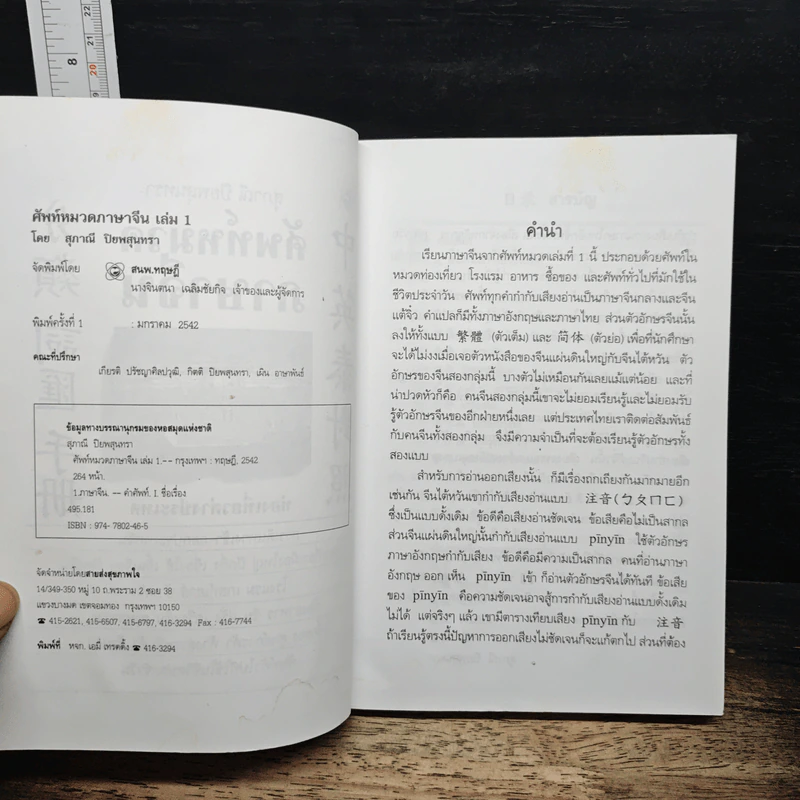 8
22
21
20
ศัพท์หมวดภาษาจีน เล่ม 1
โดย สุภาณี ปิยพสุนทรา
จัดพิมพ์โดย สนพ.ทฤษฎี
นางจินตนา เฉลิมชัยกิจ เจ้าของและผู้จัดการ
พิมพ์ครั้งที่ 1 : มกราคม 2542
คณะที่ปรึกษา
เกียรติ ปรัชญาศิลปวุฒิ, กิตติ ปิยพสุนทรา, เผิน อาษาพันธ์
ข้อมูลทางบรรณานุกรมของหอสมุดแห่งชาติ
สุภาณี ปิยพสุนทรา
ศัพท์หมวดภาษาจีน เล่ม 1.-- กรุงเทพฯ : ทฤษฎี, 2542
264 หน้า.
1.ภาษาจีน. -- คำศัพท์. 1 ชื่อเรื่อง
495.181
ISBN : 974- 7802-46-5
จัดจำหน่ายโดยสายส่งสุขภาพใจ
14/349-350 หมู่ 10 ถ.พระราม 2 ซอย 38
แขวงบางมด เขตจอมทอง กรุงเทพฯ 10150
☎ 415-2621, 415-6507, 415-6797, 416-3294 Fax : 416-7744
พิมพ์ที่ หจก. เอมี่ เทรดดิ้ง ☎ 416-3294
คำนำ
เรียนภาษาจีนจากศัพท์หมวดเล่มที่ 1 นี้ ประกอบด้วยศัพท์ใน
หมวดท่องเที่ยว โรงแรม อาหาร ซื้อของ และศัพท์ทั่วไปที่มักใช้ใน
ชีวิตประจำวัน ศัพท์ทุกคำกำกับเสียงอ่านเป็นภาษาจีนกลางและจีน
แต้จิ๋ว คำแปลก็มีทั้งภาษาอังกฤษและภาษาไทย ส่วนตัวอักษรจีนนั้น
ลงให้ทั้งแบบ 繁體 (ตัวเต็ม) และ 简体 (ตัวย่อ) เพื่อที่นักศึกษา
จะได้ไม่งงเมื่อเจอตัวหนังสือของจีนแผ่นดินใหญ่กับจีนไต้หวัน ตัว
อักษรของจีนสองกลุ่มนี้ บางตัวไม่เหมือนกันเลยแม้แต่น้อย และที่
น่าปวดหัวก็คือ คนจีนสองกลุ่มนี้เขาจะไม่ยอมเรียนรู้และไม่ยอมรับ
รู้ตัวอักษรจีนของอีกฝ่ายหนึ่งเลย แต่ประเทศไทยเราติดต่อสัมพันธ์
กับคนจีนทั้งสองกลุ่ม จึงมีความจำเป็นที่จะต้องเรียนรู้ตัวอักษรทั้ง
สองแบบ
สำหรับการอ่านออกเสียงนั้น ก็มีเรื่องถกเถียงกันมากมายอีก
เช่นกัน จีนไต้หวันเขากำกับเสียงอ่านแบบ 注音(ㄅㄆㄇㄈ)
ซึ่งเป็นแบบดั้งเดิม ข้อดีคือเสียงอ่านชัดเจน ข้อเสียคือไม่เป็นสากล
ส่วนจีนแผ่นดินใหญ่นั้นกำกับเสียงอ่านแบบ pīnyīn ใช้ตัวอักษร
ภาษาอังกฤษกำกับเสียง ข้อดีคือมีความเป็นสากล คนที่อ่านภาษา
อังกฤษ ออก เห็น pīnyīn เข้า ก็อ่านตัวอักษรจีนได้ทันที ข้อเสีย
ของ pīnyīn คือความชัดเจนอาจสู้การกำกับเสียงอ่านแบบดั้งเดิม
ไม่ได้ แต่จริงๆ แล้ว เขามีตารางเทียบเสียง pīnyīn กับ 注音
ถ้าเรียนรู้ตรงนี้ปัญหาการออกเสียงไม่ชัดเจนก็จะแก้ตกไป ส่วนที่ต้อง